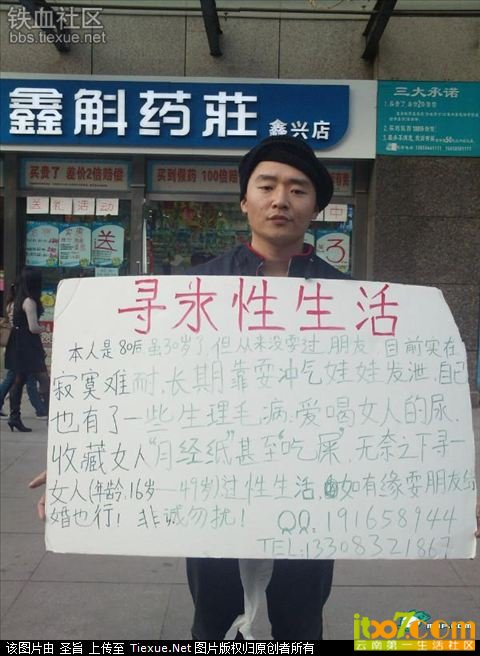 铁血社区
bbs.tiexue.net
鑫斛药莊 鑫兴店
三大承诺
买贵了 差价2倍赔偿
买到假药 100倍赔偿
关礼活动
送
中
3
寻求性生活
本人是80后虽30岁了,但从来没耍过朋友,目前实在
寂寞难耐,长期靠耍冲气娃娃发泄,自己
也有了一些生理毛病,爱喝女人的尿,
收藏女人"月经纸"甚至"吃屎",无奈之下寻一
女人(年龄,16岁—49岁)过性生活,如有缘耍朋友结
婚也行!非诚勿扰! QQ:191658944
TEL:13308321867
itbo7.com
云南第一生活社区
该图片由 圣旨 上传至 Tiexue.Net 图片版权归原创者所有